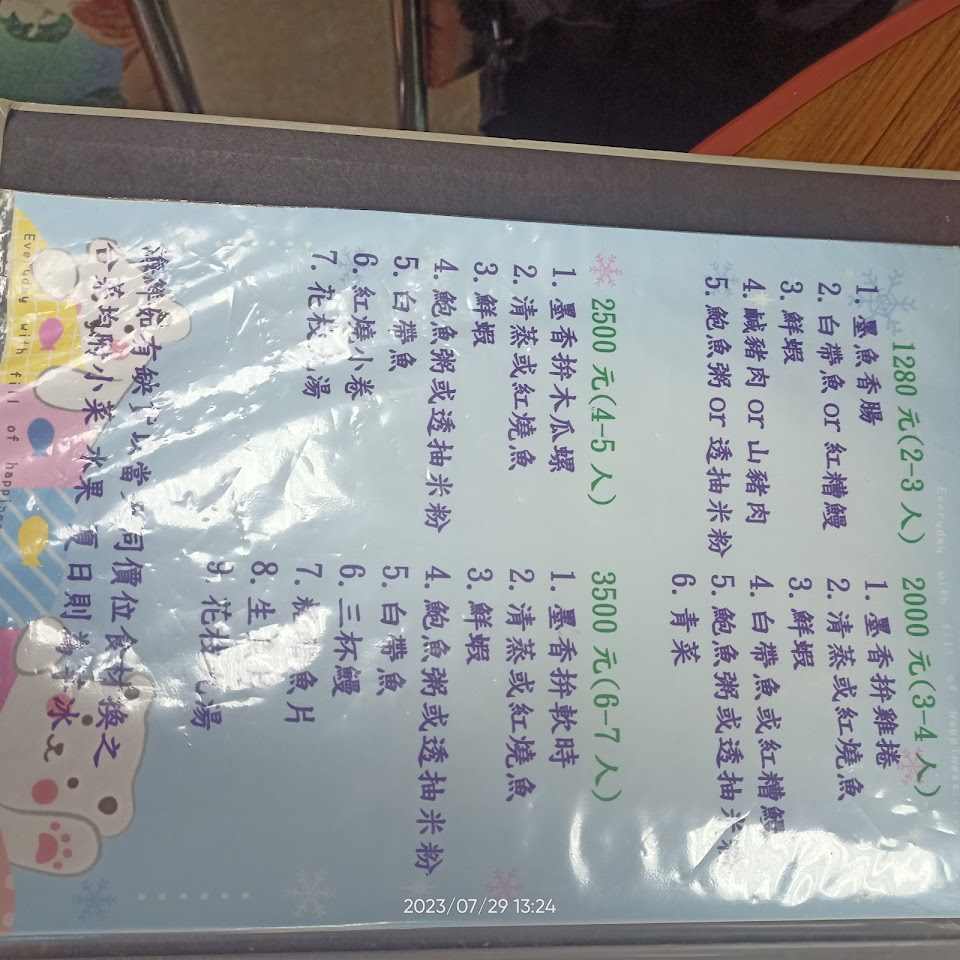 Everyday with fill of happiness
1280 元(2-3 人)
1. 墨魚香腸
2. 白帶魚 or 紅糟鰻
3. 鮮蝦
4. 鹹豬肉 or 山豬肉
5. 鮑魚粥 or 透抽米粉
2000 元(3-4 人)
1. 墨香拚雞捲
2. 清蒸或紅燒魚
3. 鮮蝦
4. 白帶魚或紅糟鰻
5. 鮑魚粥或透抽米
6. 青菜
2500 元(4-5 人)
1. 墨香拚木瓜螺
2. 清蒸或紅燒魚
3. 鮮蝦
4. 鮑魚粥或透抽米粉
5. 白帶魚
6. 紅燒小卷
7. 花枝 湯
3500 元(6-7 人)
1. 墨香拚軟時
2. 清蒸或紅燒魚
3. 鮮蝦
4. 鮑魚粥或透抽米粉
5. 白帶魚
6. 三杯鰻
7. 魚片
8. 生
9. 花枝 湯
有缺 以當 同價位食材 換之
合菜均附小菜 水果 夏日則為 冰
Everyday with fill of happine
2023/07/29 13:24